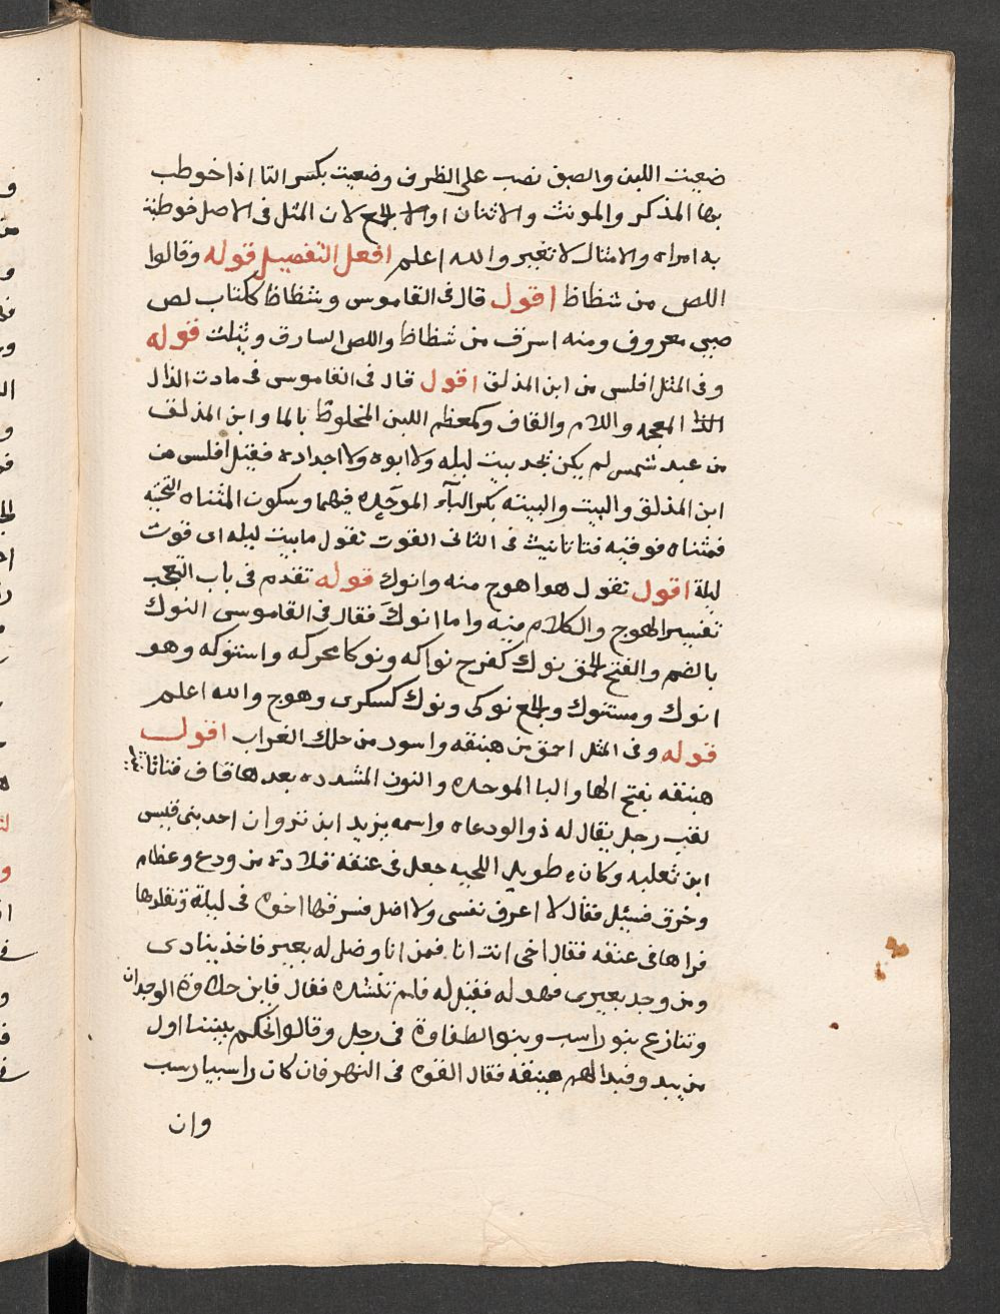 ضيعت اللبن والصيف نصب على الظرف وضيعت بكسر التا اذا خوطب
بها المذكر والمونث والاثنان او الجمع لان المثل فى الاصل خوطبت
به امراه والامثال لا تغير والله اعلم افعل التفضيل قوله وقالوا
اللص من شظاظ اقول قال فى القاموس وشظاظ ككتاب لص
ضبى معروف ومنه اسرق من شظاظ واللص السارق ويثلث قوله
وفى المثل افلس من ابن المذلق اقول قال فى القاموس فى مادت الذال
المعجمه واللام والقاف وكمعظم اللبن المخلوط بالما وابن المذلق
من عبد شمس لم يكن يجد بيت ليله ولا ابوه ولا اجداده فقيل افلس من
ابن المذلق والبيت والبيته بكسر البآء الموحده فيهما وسكون المثناه التحتيه
فمثناه فوقيه فتا تانيث فى الثانى القوت تقول ما بيت ليله اى قوت
ليلة اقول تقول هو اهوج منه وانوك قوله تقدم فى باب التعجب
تفسير الهوج والكلام فيه واما انوك فقال فى القاموس النوك
بالضم والفتح الحمق نوك كفرح نواكه ونوكا محركه واستنوكه وهو
انوك ومستنوك والجمع نوكى ونوك كسكرى وهوج والله اعلم
قوله وفى المثل احمق من هبنقه واسود من حلك الغراب اقول
هبنقه بفتح الها والبا الموحده والنون المشدده بعدها قاف فتا تا
لقب رجل يقال له ذو الودعاه واسمه يزيد ابن ثروان احد بنى قيس
ابن ثعلبه وكان طويل اللحيه جعل فى عنقه قلادة من ودع وعظام
وخزف فسيل فقال لا اعرف نفسى ولا اضل فسرقها اخوه فى ليلة وتقلدها
فراها فى عنقه فقال اخى انت انا فمن انا وضل له بعير فاخذ ينادى
ومن وجد بعيرى فهو له فقيل له فلم تنشده فقال فاين حلاوة الوجدان
وتنازع بنو راسب وبنو الطفاوة فى رجل وقالوا الحكم بيننا اول
من يبدو فبدا لهم هبنقه فقال القوه فى النهر فان كان راسبيا رسب
وان